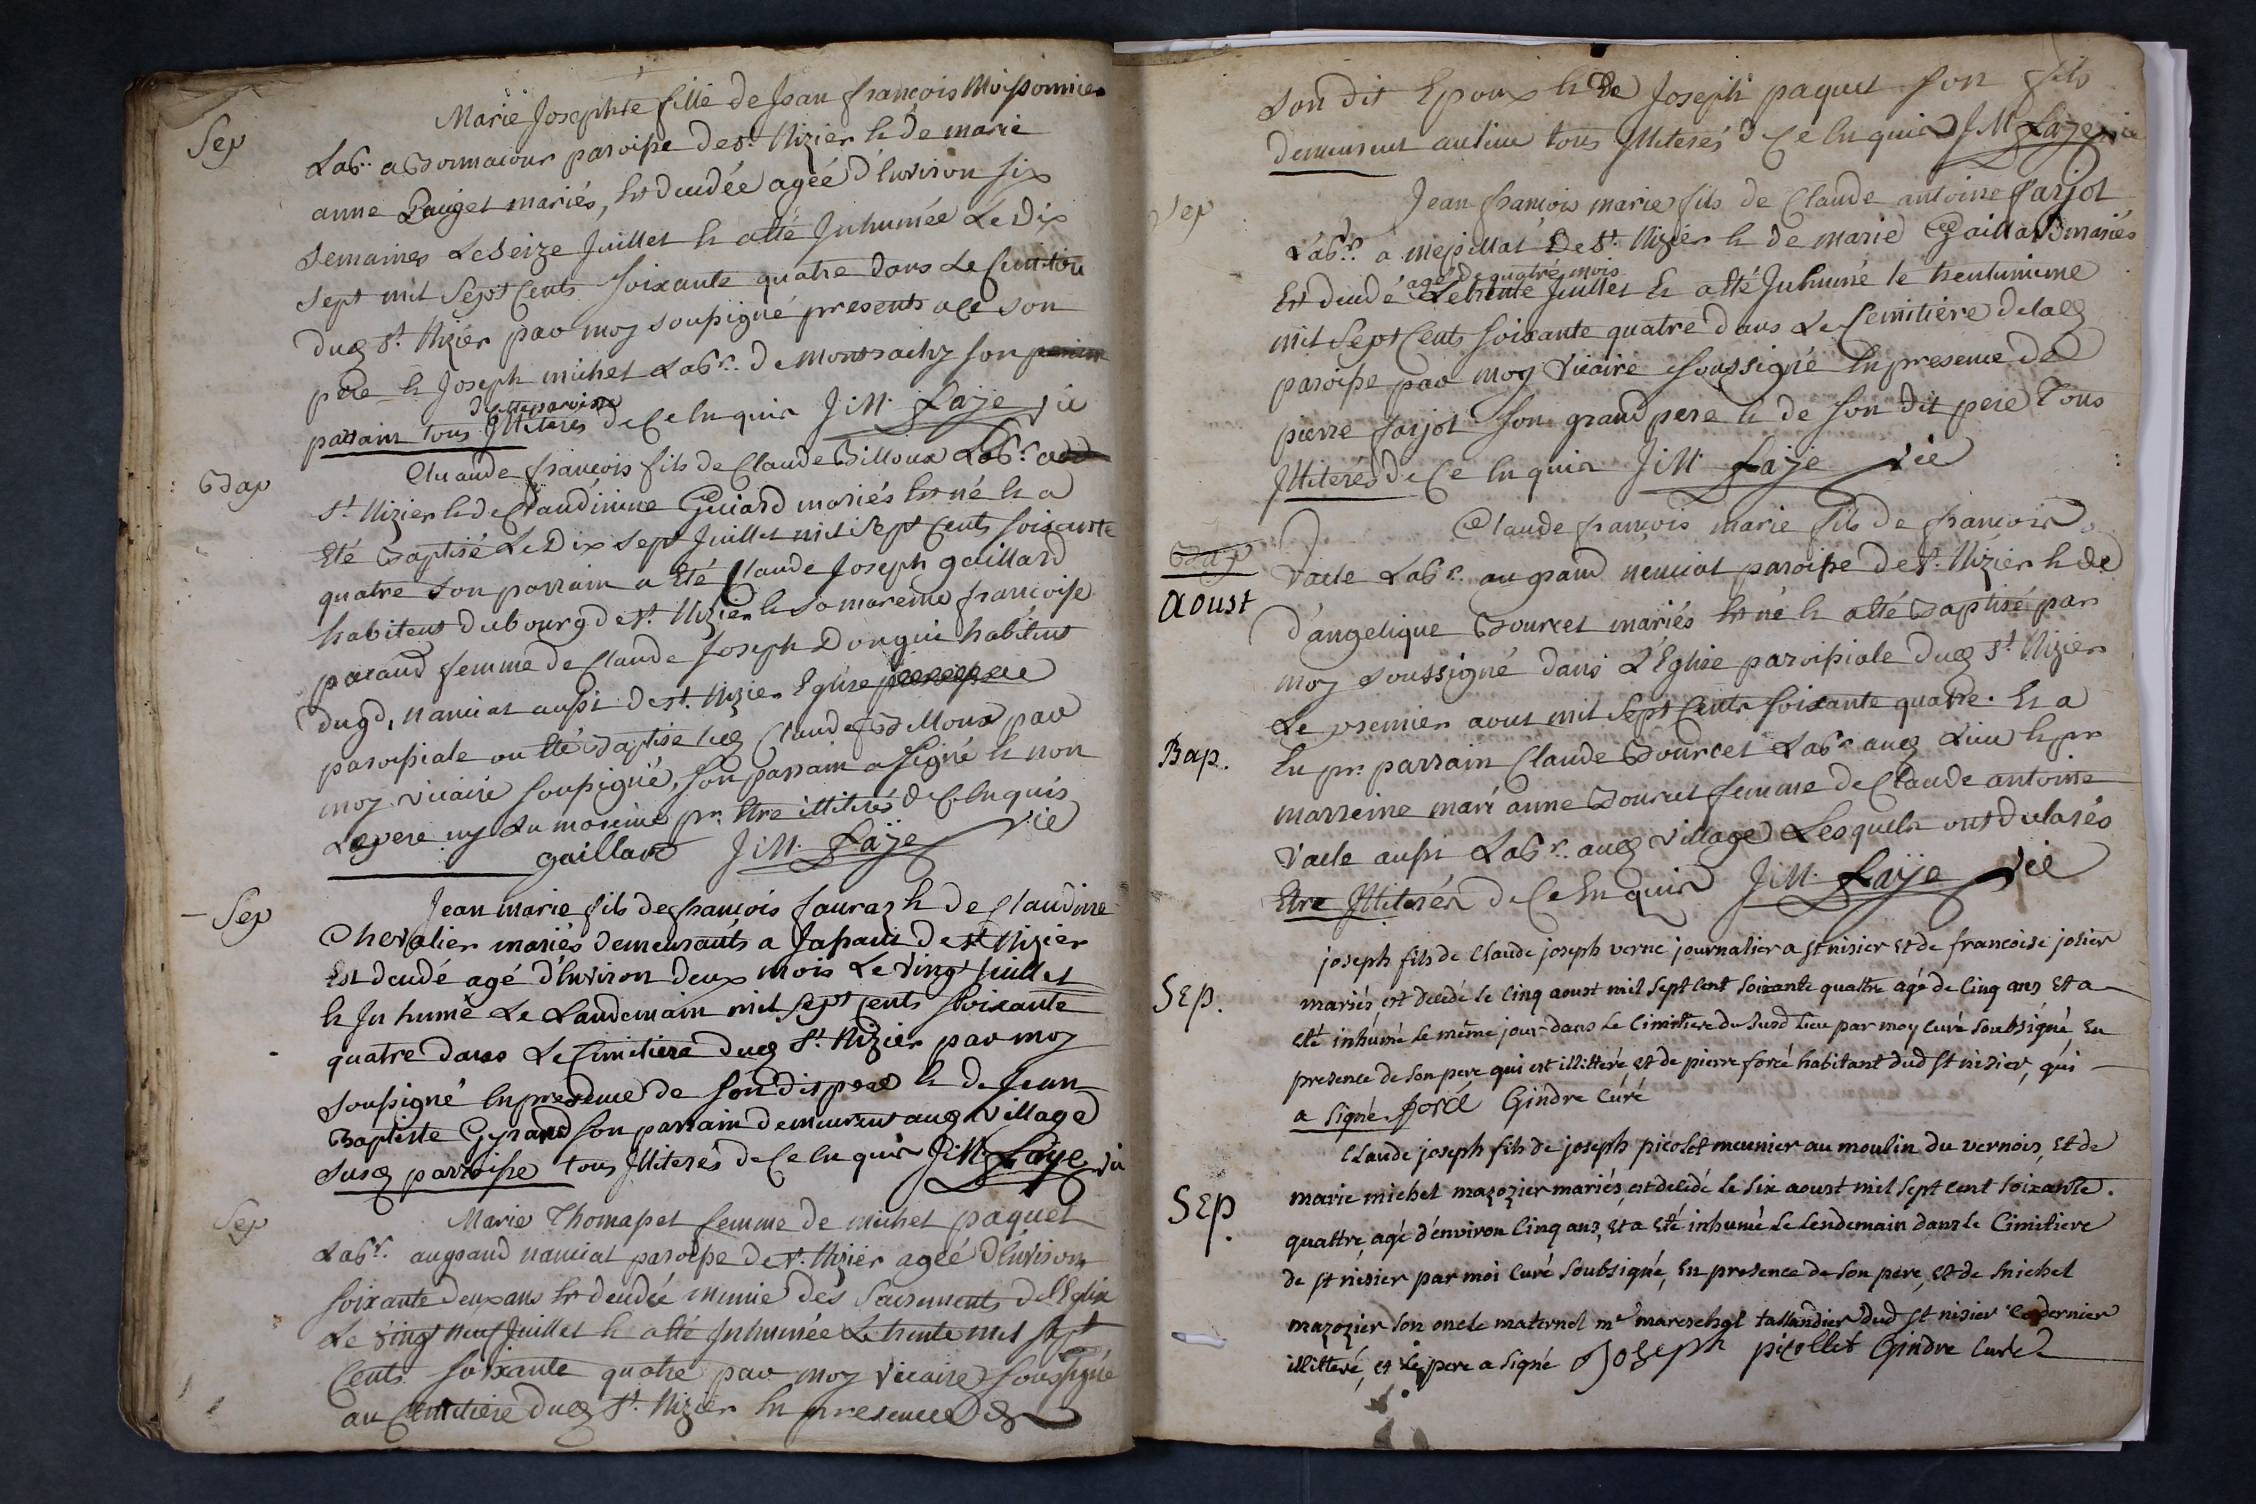 Sep
Marie Josephte fille de Jean françois Moissonnier
Labr. a Bonnacour paroisse de st. Nizier & de marie
anne Pauget mariés, est decedée agéé d'Environ six
semaines Le seize Juillet & a etté Inhumée Le Dix
sept mil sept Cents soixante quatre dans Le Cimitiere
dud st. Nizier par moy soussigné presents a ce son
pere & Joseph michet Labr. de montrachy son
de cette paroisse
parrain tous Illiterés de Ce Enquis J: M: Laÿe vic
Bap
Cluaude françois fils de Claude Billoux Labr. a
st. Nizier & de Claudinine Guiard mariés est né & a
Eté Baptisé Le Dix sept Juillet mil sept Cents soixante
quatre son parrain a Eté Claude Joseph gaillard
habitent du bourg de st. Nizier & sa mareine françoise
paraud femme de Claude Joseph Donguie habitent
du gd. nanciat aussi de st. Nizier Eglise
paroissiale ou Eté Baptise led Claude f Billoux par
moy vicaire soussigné, son parrain a signé & non
Le pere ny La mareine pr. Etre illiterés de Ce Enquis
gaillard J: M: Laÿe vic
Sep
Jean marie fils de françois fauraz & de Claudine
Chevalier mariés demeurants a Japani de st Nizier
Est decedé agé d'Environ deux mois Le vingt Juillet
& Inhumé Le Landemain mil sept Cents soixante
quatre dans Le Cimetiere dud st. Nizier par moy
soussigné En presence de son dit pere & de Jean
Baptiste Gyraud son parrain demeurent aud village
susd parroisse tous Illiterés de Ce Enquis J: M: Laÿe vic
Sep
Marie Thomasset femme de michel paquet
Labr. au grand nanciat paroisse de st. Nizier agéé d'Environ
soixante deux ans Est decedée munie des Sacrements de l'Eglise
Le vingt neuf Juillet & a etté Inhumée Le trente mil sept
Cents soixante quatre par moy vicaire soussigné
au Cimitiere dud st. Nizier En presence de
son dit Epoux & de Joseph paquet son fils
demeurent au lieu tous Illiterés de Ce Enquis J M Laÿe vic
Sep
Jean françois marie fils de Claude antoine farjot
Labr. a mepillat de st. Nizier & de marie Gaillard mariés
agé de quatre mois
Est decedé Le trente Juillet & a etté Inhumé le trentunieme
mil sept Cents soixante quatre dans Le Cemitiere de lad
paroisse par moy vicaire soussigné En presence de
pierre farjot son grand pere & de son dit pere Tous
Illiterés de Ce Enquis J: M: Laÿe vic
Bap
Aoust
Claude françois marie fils de françois
vacle Labr. au grand nenciat paroisse de st. Nizier & de
d'angelique Bourcet mariés est né & a etté Baptisé par
moy soussigné dans L'Eglise paroissiale dud st. Nizier
Le premier aout mil sept Cents soixante quatre. Et a
Bap.
Eu pr. parrain Claude Bourcet Labr. aud Lieu & pr.
marreine mari anne Bourcet femme de Claude antoine
vacle aussi Labr. aud village Lesquels ont declarés
Etre Illiterés de Ce Enquis J: M: Laÿe vic
Sep.
joseph fils de Claude joseph verne journalier a st nisier et de francoise josier
mariés est decedé le cinq aoust mil sept cent soixante quattre agé de cinq ans et a
eté inhumé le même jour dans le cimitiere du susd lieu par moy curé soubsigné, en
presence de son pere qui est illitteré, et de pierre forcé habitant dud st nisier, qui
a signé. forcé Gindre curé
Sep.
Claude joseph fils de joseph picolet meunier au moulin du vernois, et de
marie michel mazozier mariés est decedé le six aoust mil sept cent soixante.
quattre, agé d'environ cinq ans, et a eté inhumé le lendemain dans le cimitiere
de st nisier par moi curé soubsigné, en presence de son pere, et de michel
mazozier son oncle maternel me marechal tallandier dud st nisier ce dernier
illitteré, et le pere a signé Joseph picollet Gindre curé